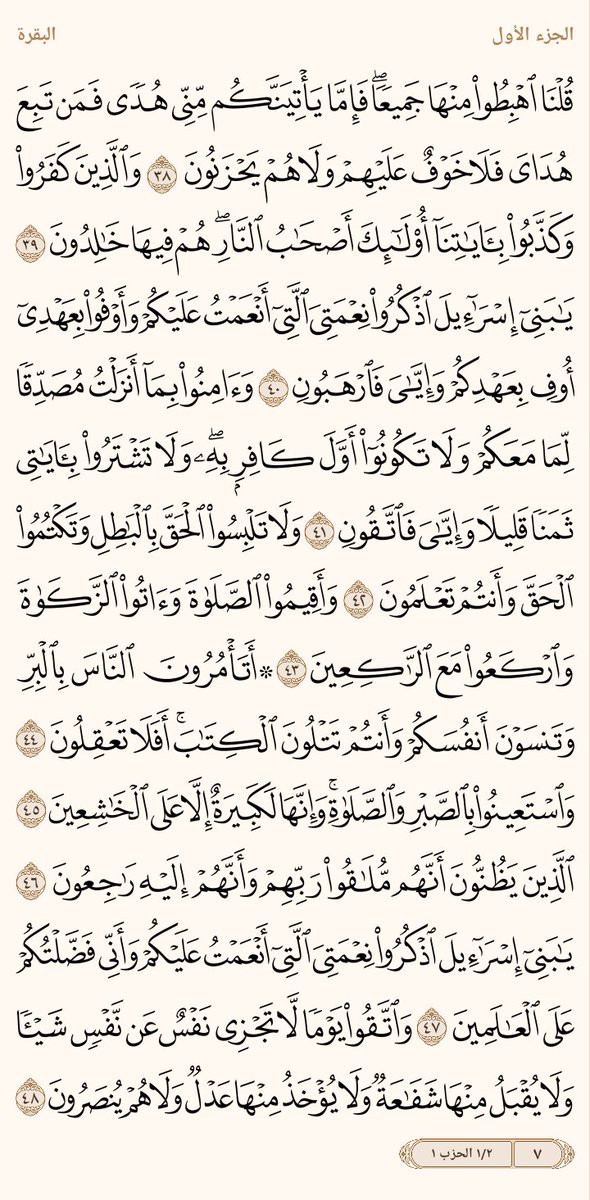 الجزء الأول
البقرة
قُلْنَا ٱهْبِطُوا۟ مِنْهَا جَمِيعًۭا ۖ فَإِمَّا يَأْتِيَنَّكُم مِّنِّى هُدًۭى فَمَن تَبِعَ
هُدَاىَ فَلَا خَوْفٌ عَلَيْهِمْ وَلَا هُمْ يَحْزَنُونَ ٣٨ وَٱلَّذِينَ كَفَرُوا۟
وَكَذَّبُوا۟ بِـَٔايَـٰتِنَآ أُو۟لَـٰٓئِكَ أَصْحَـٰبُ ٱلنَّارِ ۖ هُمْ فِيهَا خَـٰلِدُونَ ٣٩
يَـٰبَنِىٓ إِسْرَٰٓءِيلَ ٱذْكُرُوا۟ نِعْمَتِىَ ٱلَّتِىٓ أَنْعَمْتُ عَلَيْكُمْ وَأَوْفُوا۟ بِعَهْدِىٓ
أُوفِ بِعَهْدِكُمْ وَإِيَّـٰىَ فَٱرْهَبُونِ ٤٠ وَءَامِنُوا۟ بِمَآ أَنزَلْتُ مُصَدِّقًۭا
لِّمَا مَعَكُمْ وَلَا تَكُونُوٓا۟ أَوَّلَ كَافِرٍۭ بِهِۦ ۖ وَلَا تَشْتَرُوا۟ بِـَٔايَـٰتِى
ثَمَنًۭا قَلِيلًۭا وَإِيَّـٰىَ فَٱتَّقُونِ ٤١ وَلَا تَلْبِسُوا۟ ٱلْحَقَّ بِٱلْبَـٰطِلِ وَتَكْتُمُوا۟
ٱلْحَقَّ وَأَنتُمْ تَعْلَمُونَ ٤٢ وَأَقِيمُوا۟ ٱلصَّلَوٰةَ وَءَاتُوا۟ ٱلزَّكَوٰةَ
وَٱرْكَعُوا۟ مَعَ ٱلرَّٰكِعِينَ ٤٣ ۞ أَتَأْمُرُونَ ٱلنَّاسَ بِٱلْبِرِّ
وَتَنسَوْنَ أَنفُسَكُمْ وَأَنتُمْ تَتْلُونَ ٱلْكِتَـٰبَ ۚ أَفَلَا تَعْقِلُونَ ٤٤
وَٱسْتَعِينُوا۟ بِٱلصَّبْرِ وَٱلصَّلَوٰةِ ۚ وَإِنَّهَا لَكَبِيرَةٌ إِلَّا عَلَى ٱلْخَـٰشِعِينَ ٤٥
ٱلَّذِينَ يَظُنُّونَ أَنَّهُم مُّلَـٰقُوا۟ رَبِّهِمْ وَأَنَّهُمْ إِلَيْهِ رَٰجِعُونَ ٤٦
يَـٰبَنِىٓ إِسْرَٰٓءِيلَ ٱذْكُرُوا۟ نِعْمَتِىَ ٱلَّتِىٓ أَنْعَمْتُ عَلَيْكُمْ وَأَنِّى فَضَّلْتُكُمْ
عَلَى ٱلْعَـٰلَمِينَ ٤٧ وَٱتَّقُوا۟ يَوْمًۭا لَّا تَجْزِى نَفْسٌ عَن نَّفْسٍۢ شَيْـًۭٔا
وَلَا يُقْبَلُ مِنْهَا شَفَـٰعَةٌۭ وَلَا يُؤْخَذُ مِنْهَا عَدْلٌۭ وَلَا هُمْ يُنصَرُونَ ٤٨
٧
١/٢ الحزب ١